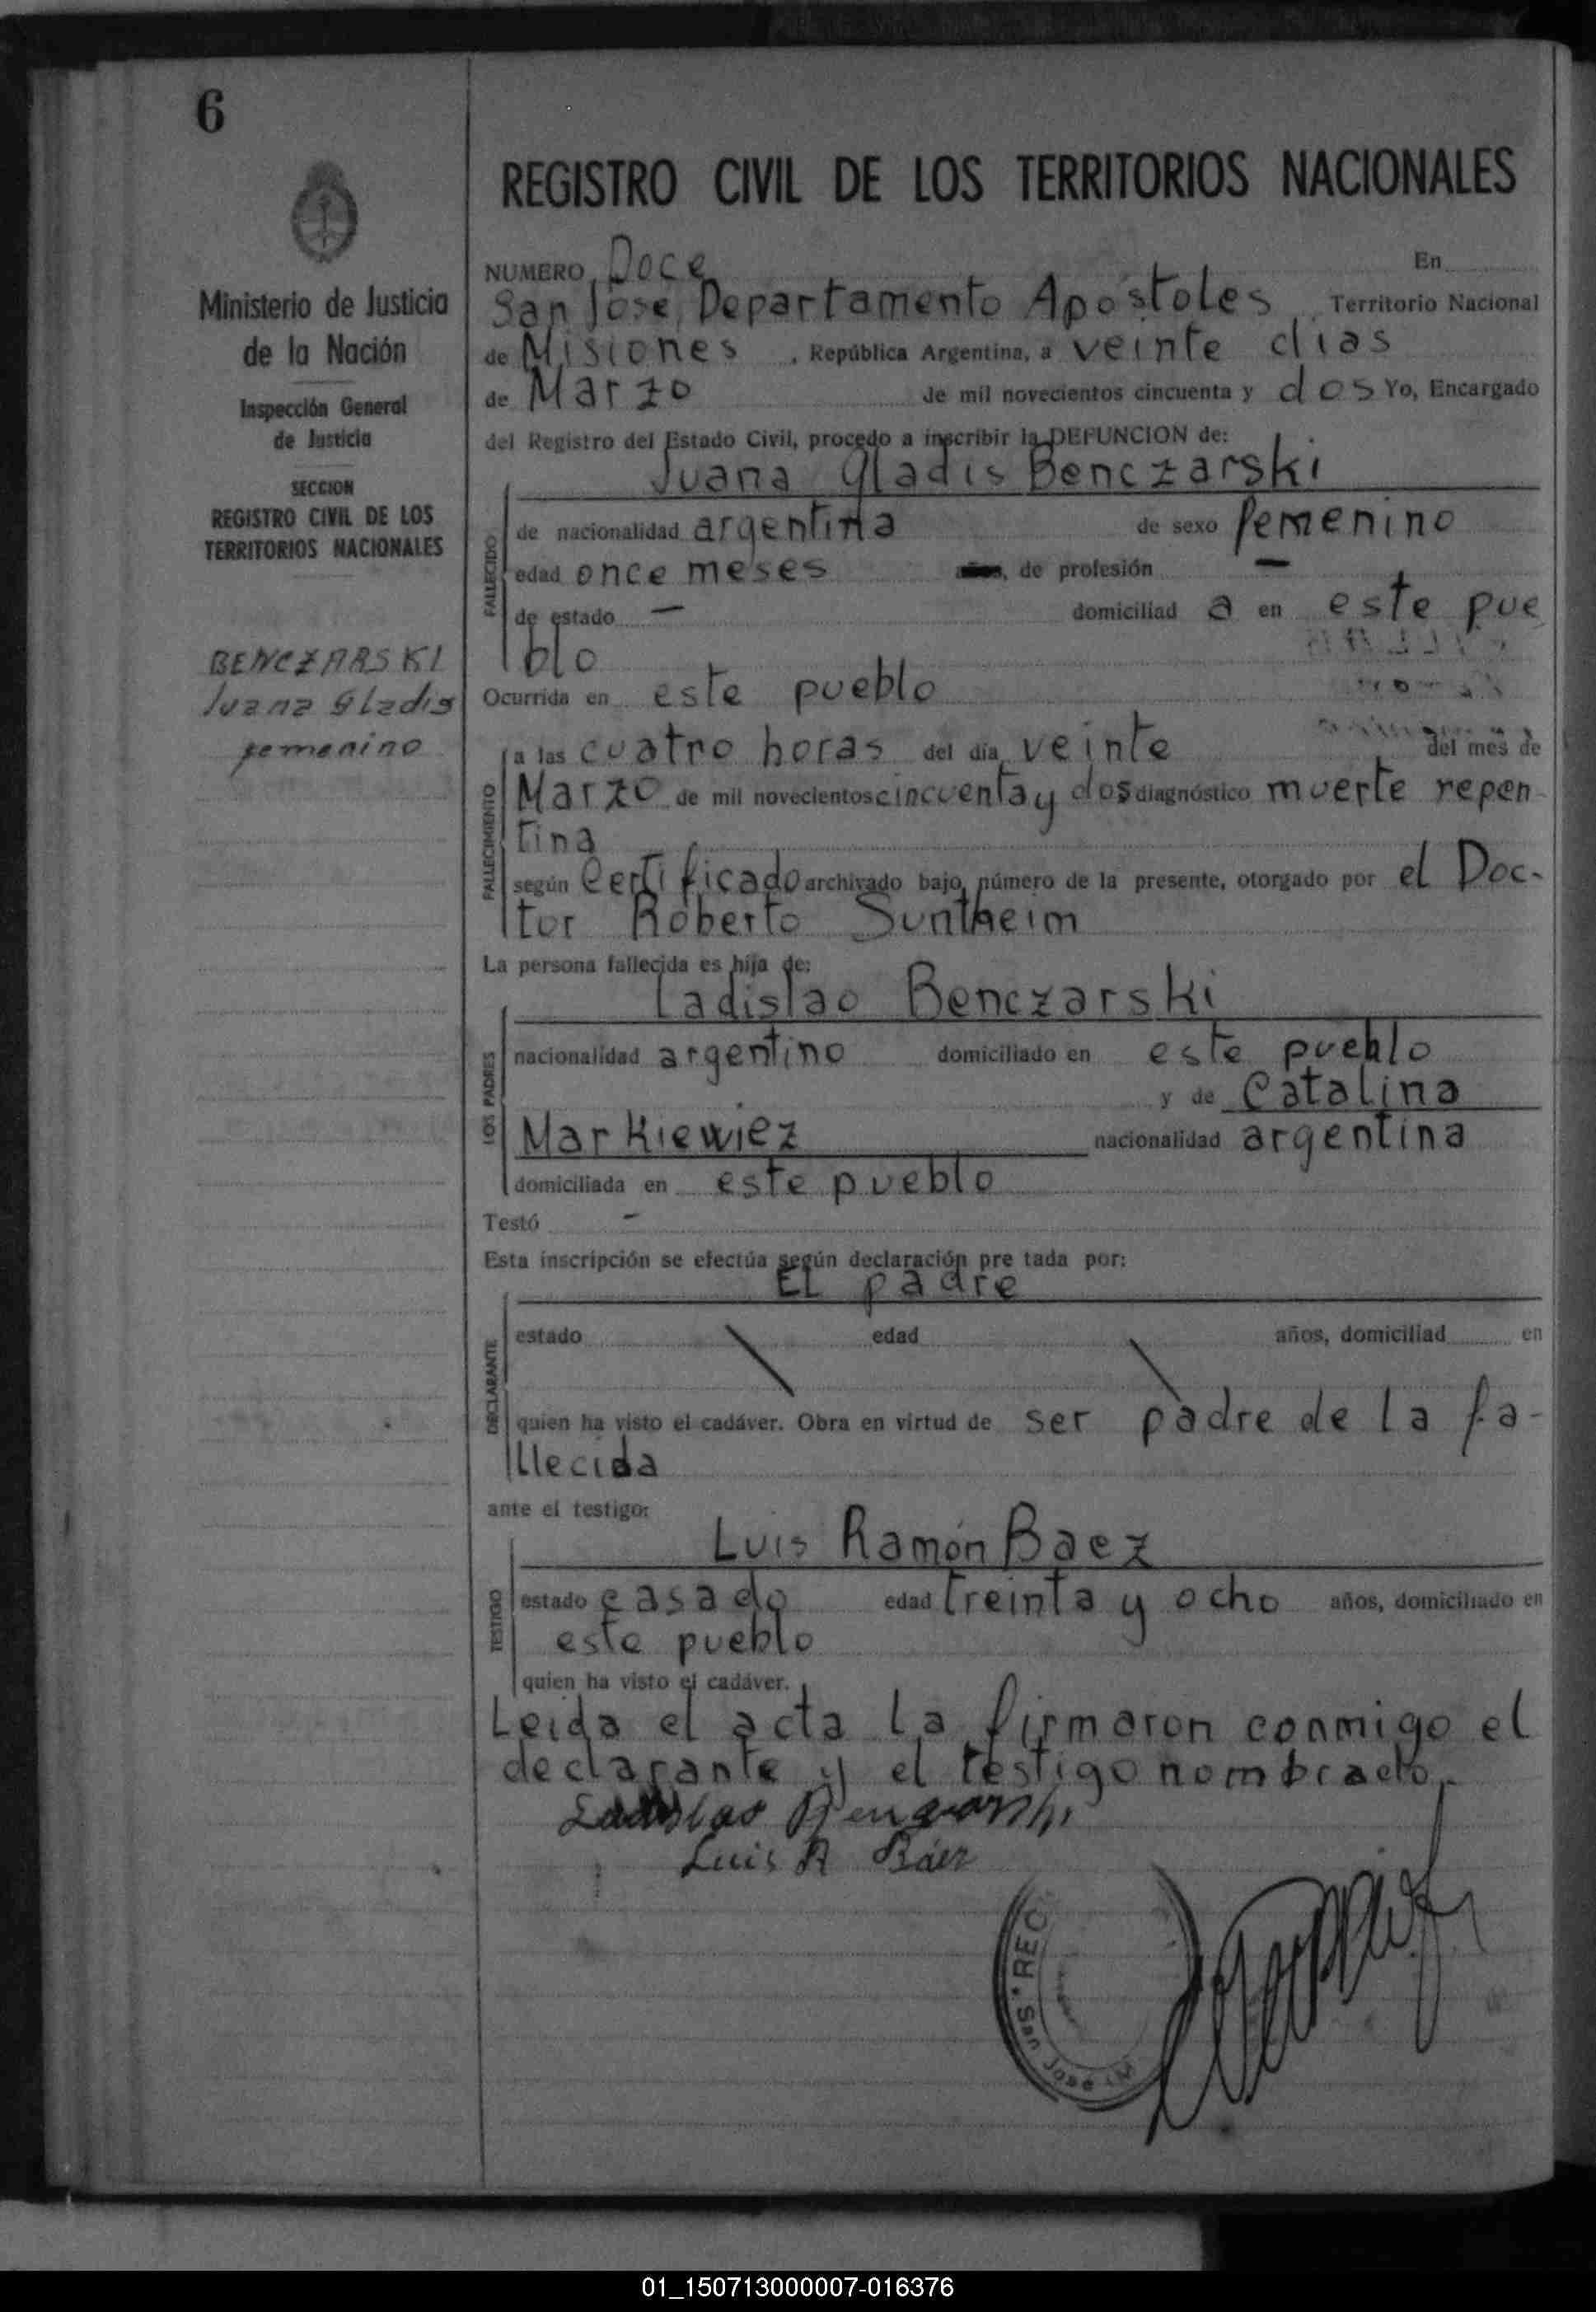 6
REGISTRO CIVIL DE LOS TERRITORIOS NACIONALES
Ministerio de Justicia
de la Nación
Inspección General
de Justicia
SECCION
REGISTRO CIVIL DE LOS
TERRITORIOS NACIONALES
BENCZARSKI
Juana Gladis
femenino
NUMERO Doce En
San Jose, Departamento Apostoles Territorio Nacional
de Misiones , República Argentina, a veinte dias
de Marzo de mil novecientos cincuenta y dos Yo, Encargado
del Registro del Estado Civil, procedo a inscribir la DEFUNCION de:
Juana Gladis Benczarski
FALLECIDO
de nacionalidad argentina de sexo femenino
edad once meses años, de profesión —
de estado — domiciliad a en este pue
blo
Ocurrida en este pueblo
FALLECIMIENTO
a las cuatro horas del día veinte del mes de
Marzo de mil novecientos cincuenta y dos diagnóstico muerte repen-
tina
según Certificado archivado bajo número de la presente, otorgado por el Doc-
tor Roberto Suntheim
La persona fallecida es hija de:
Ladislao Benczarski
LOS PADRES
nacionalidad argentino domiciliado en este pueblo
y de Catalina
Markiewiez nacionalidad argentina
domiciliada en este pueblo
Testó -
Esta inscripción se efectúa según declaración pre tada por:
El padre
DECLARANTE
estado edad años, domiciliad en
quien ha visto el cadáver. Obra en virtud de ser padre de la fa-
llecida
ante el testigo:
Luis Ramón Baez
TESTIGO
estado casado edad treinta y ocho años, domiciliado en
este pueblo
quien ha visto el cadáver.
Leida el acta la firmaron conmigo el
declarante y el testigo nombrado.-
Ladislao Benczarski
Luis R Báez
REG
San José
01_150713000007-016376